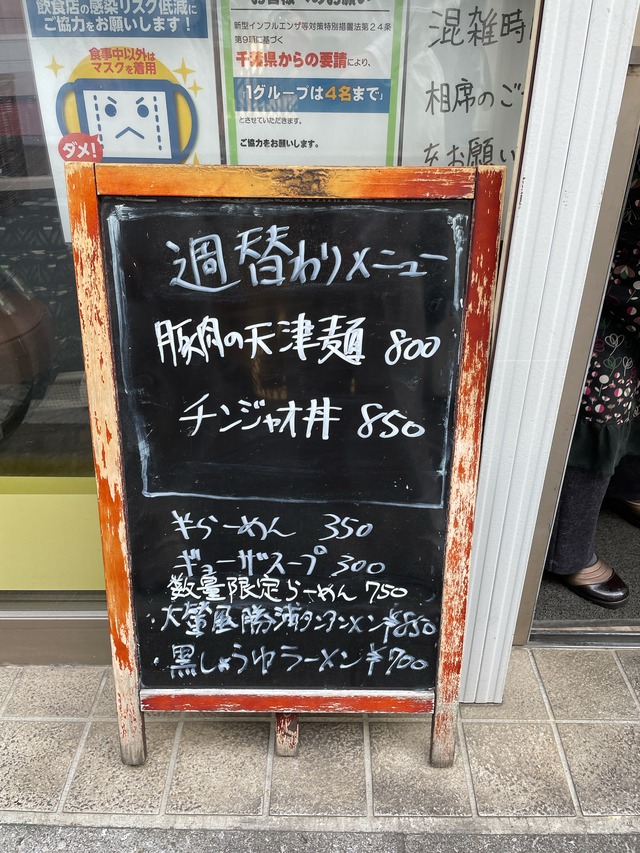 飲食店の感染リスク低減に
ご協力をお願いします!
食事中以外は
マスクを着用
ダメ!
新型インフルエンザ等対策特別措置法第24条
第9項に基づく
千葉県からの要請により、
1グループは4名まで
とさせていただきます。
ご協力をお願いします。
混雑時
相席のご
をお願い
週替わりメニュー
豚肉の天津麺 800
チンジャオ丼 850
半らーめん 350
ギョーザスープ 300
数量限定らーめん 750
大蒜風勝浦タンタンメン¥850
黒しょうゆラーメン¥700